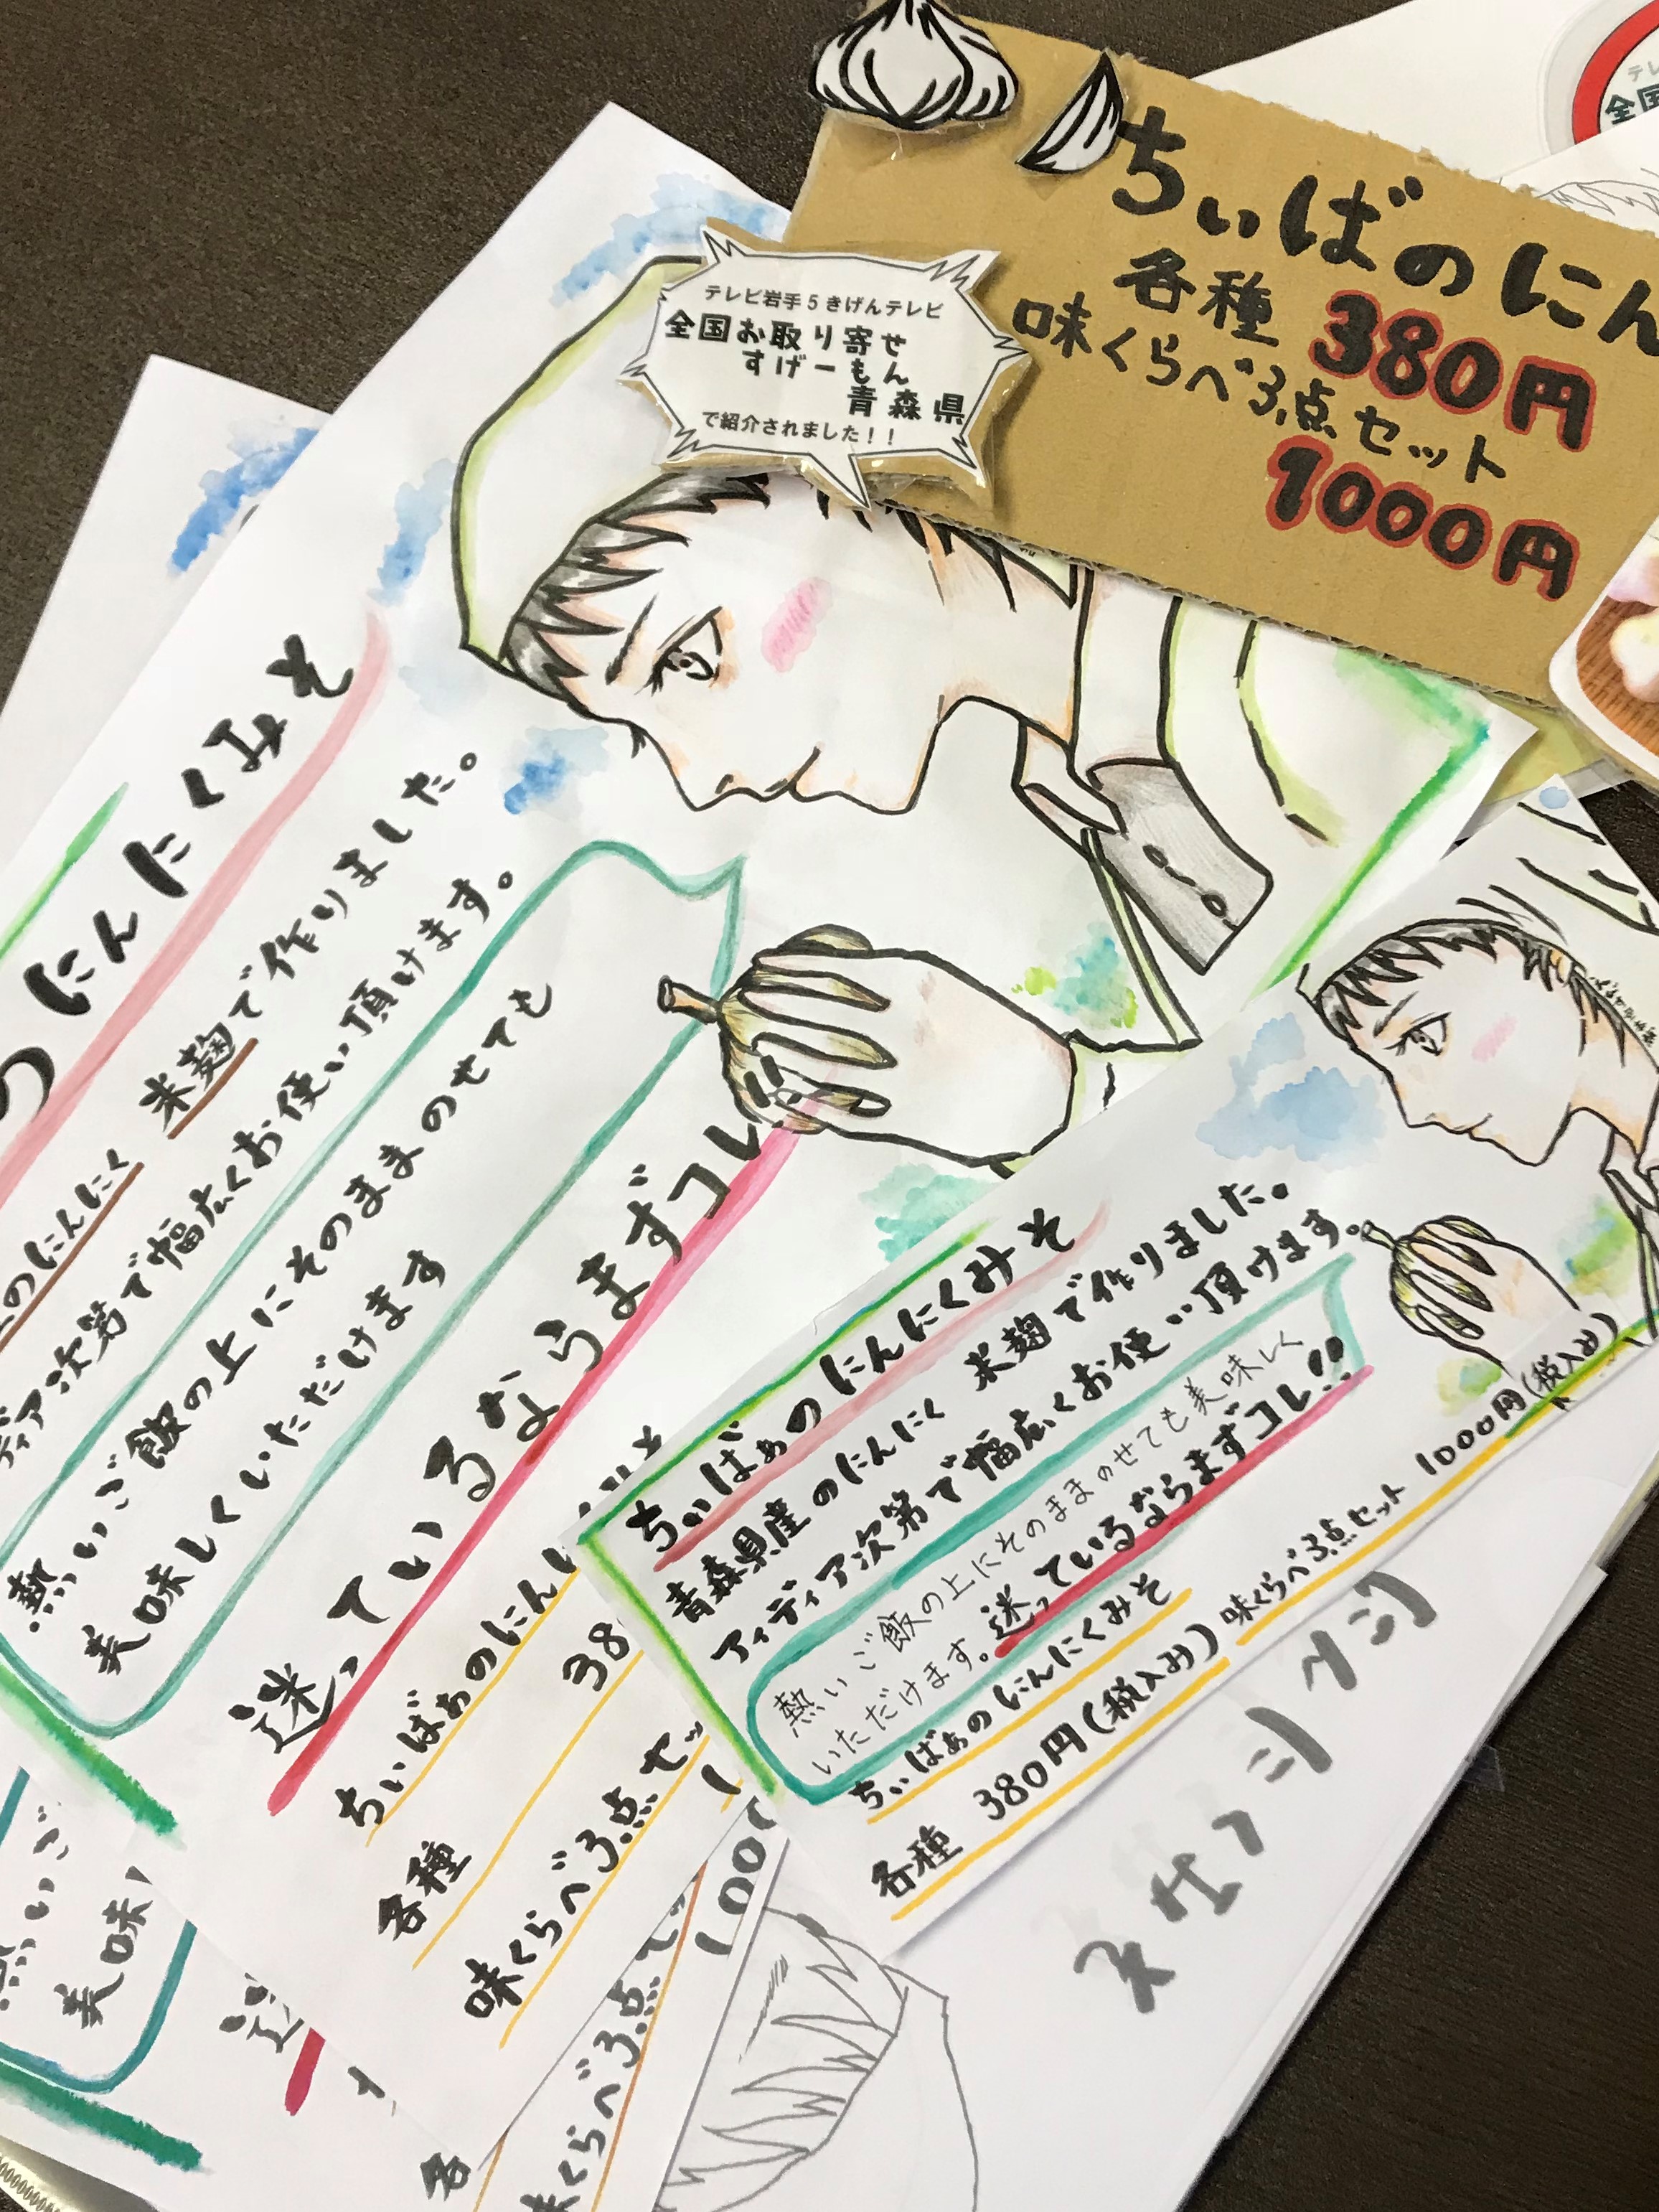 ちぃばのにん
各種 380円
味くらべ3点セット
1000円
テレビ岩手5きげんテレビ
全国お取り寄せ
すげーもん
青森県
で紹介されました!!
全国
のにんにくみそ
のにんにく 米麹で作りました。
ディア次第で幅広くお使い頂けます。
熱いご飯の上にそのままのせても
美味しくいただけます
迷っているならまずコレ!!
ちぃばぁのにんに
各種 38
味くらべ3点セッ
ちぃばぁのにんにくみそ
青森県産のにんにく 米麹で作りました。
アイディア次第で幅広くお使い頂けます。
熱いご飯の上にそのままのせても美味しく
いただけます。
迷っているならまずコレ!!
ちぃばぁのにんにくみそ
各種 380円(税込み)
味くらべ3点セット 1000円(税込み)
熱いご
美味し
各
味くらべ3点セ
1000